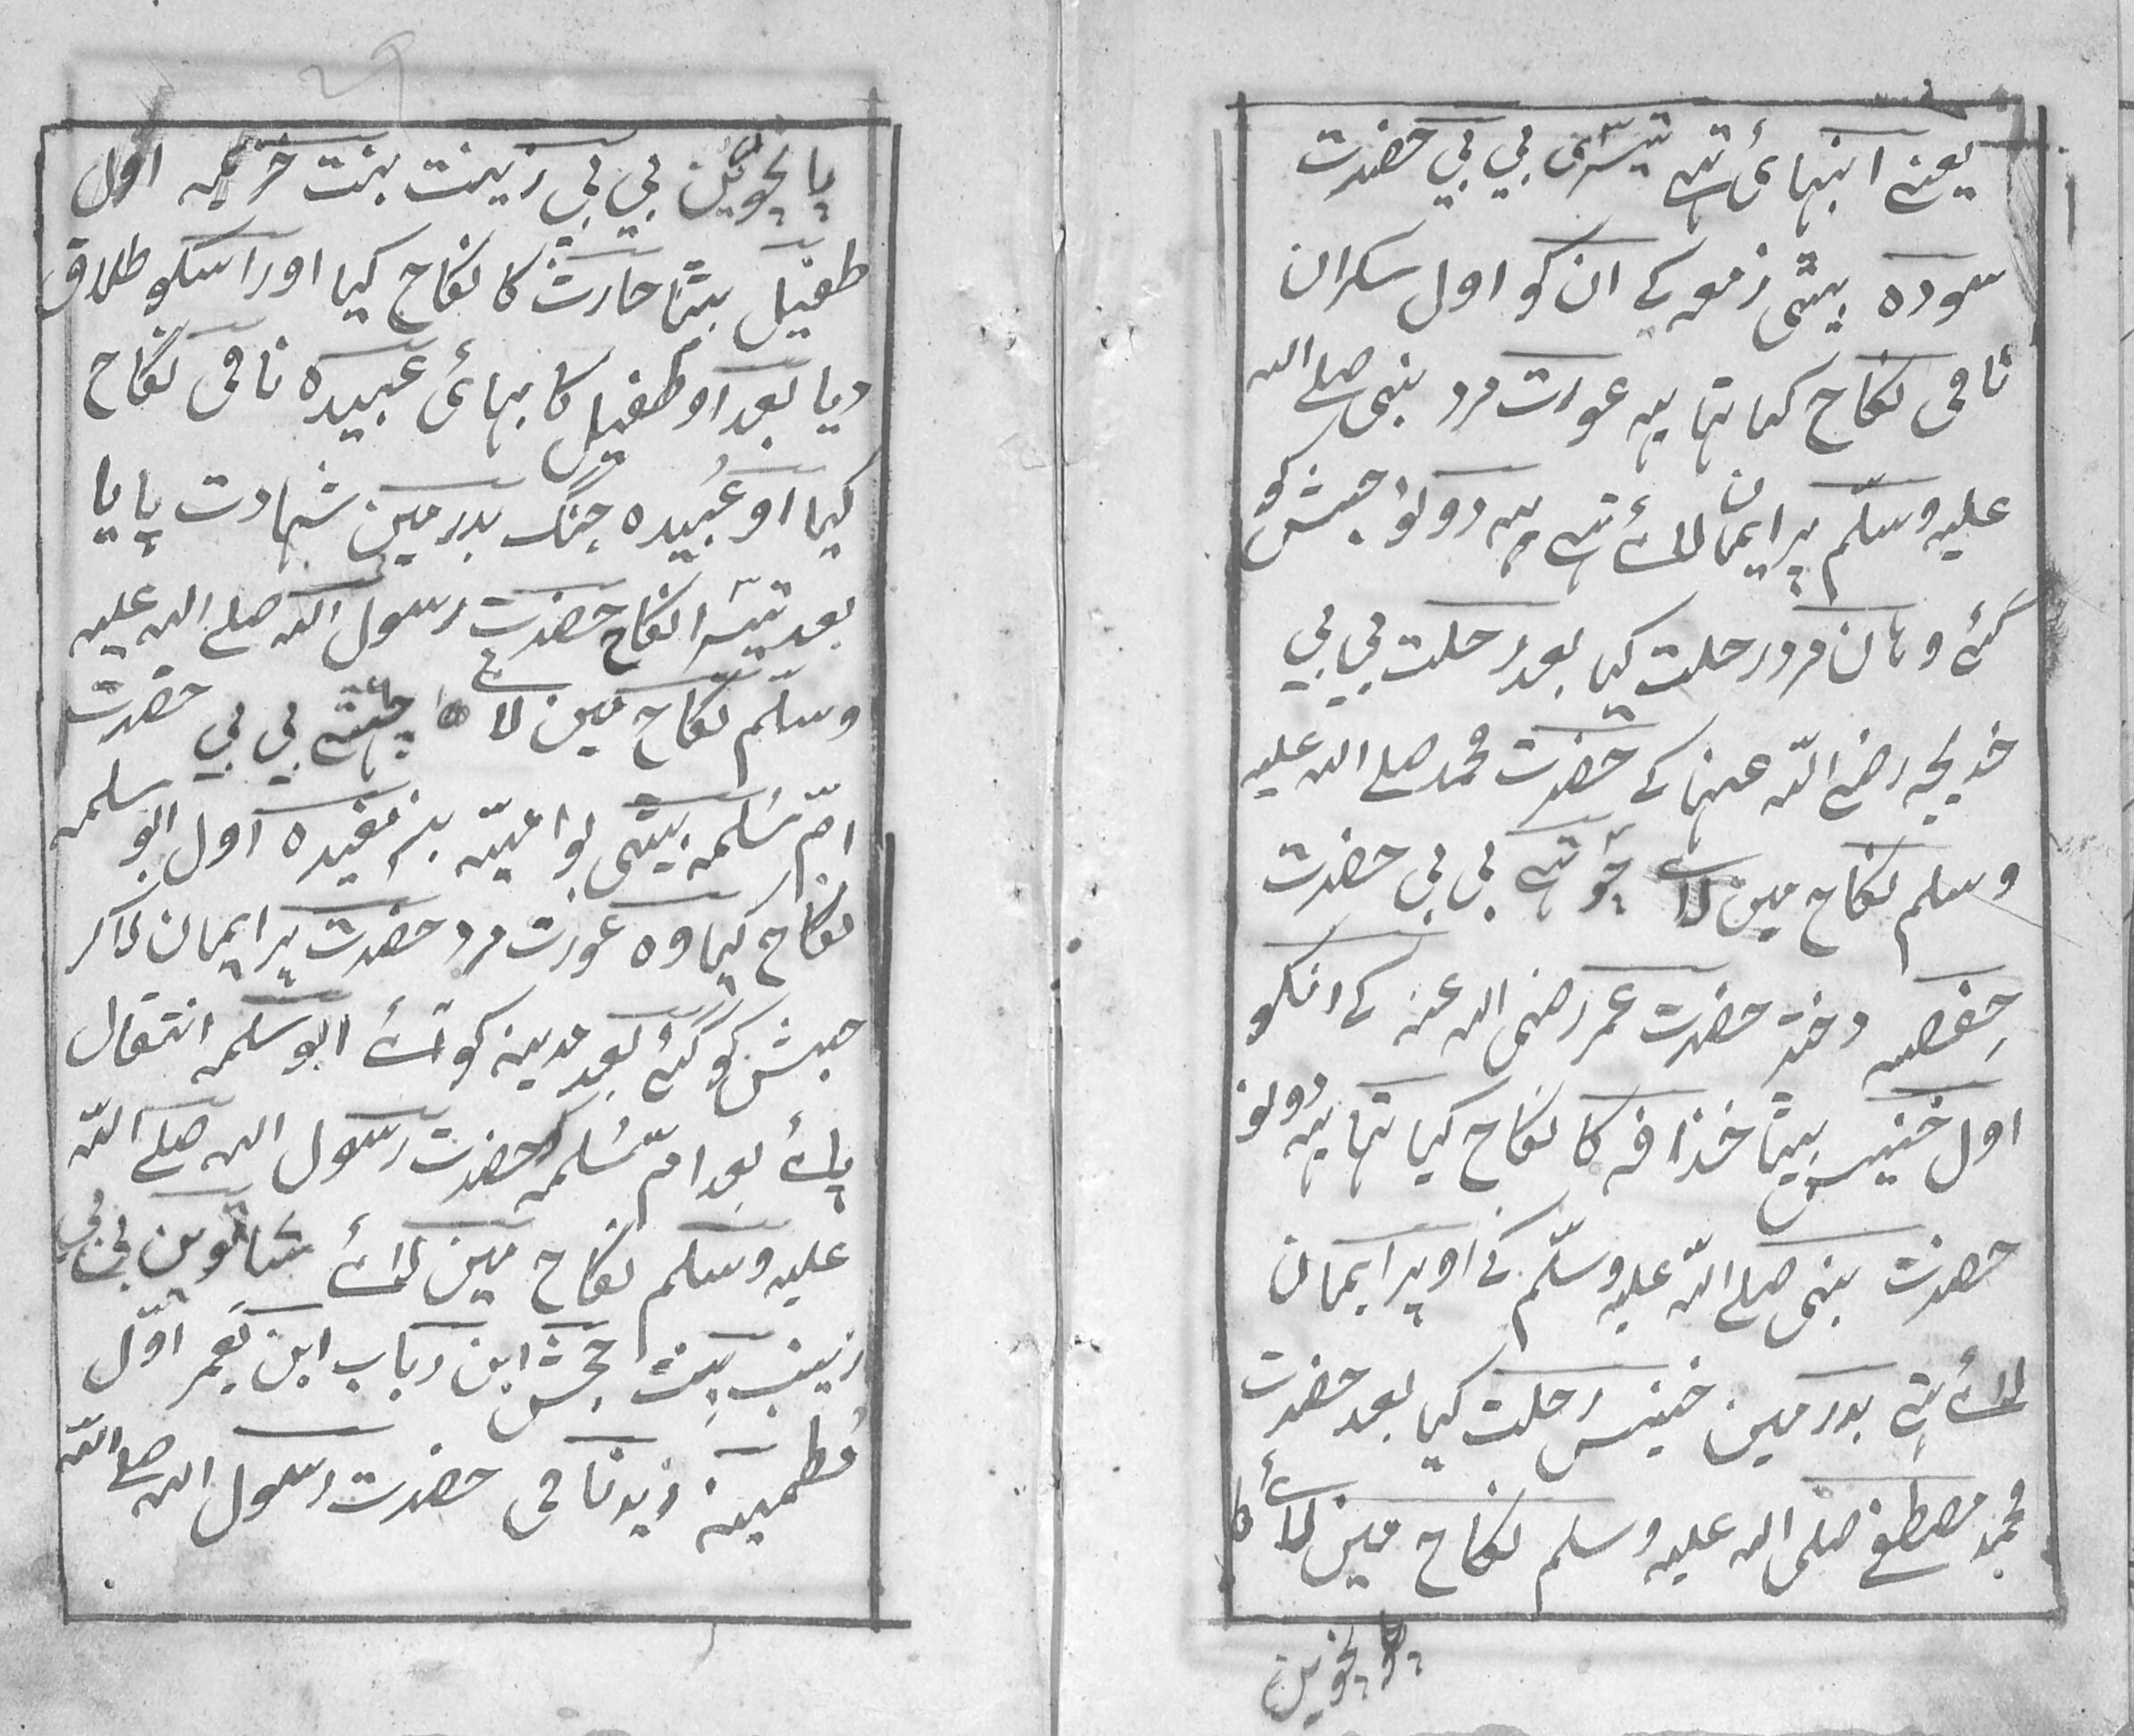 یعنے ابنہائ تہے تیسری بی بی حضرت
سودہ بیٹی زمعہ کے ان کو اول سکران
نامی نکاح کیا تہا یہ عورت مرد نبی صلے اللہ
علیہ وسلّم پر ایمان لائے تہے یہ دونو حبش کو
گئے وہان مرد رحلت کیا بعد رحلت بی بی
خدیجہ رضے اللّہ عنہا کے حضرت محمد صلے اللہ علیہ
وسلم نکاح مین لائے چوتہے بی بی حضرت
حفصہ دختر حضرت عمر رضی اللہ عنہ کے انکو
اول خنیس بیٹا خذافہ کا نکاح کیا تہا یہ دونو
حضرت نبی صلے اللّہ علیہ وسلّم کے اوپر ایمان
لائے تہے بدر مین خنیس رحلت کیا بعد حضرت
محمد مصطفے صلی اللہ علیہ وسلم نکاح مین لائے
پانچوین
پانچوین بی بی زینت بنت خزیمہ اول
طفیل بیٹا حارث کا نکاح کیا اور اسکو طلاق
دیا بعد او طفیل کا بہائ عبیدہ نامی نکاح
کیا او عُبیدہ جنگ بدر مین شہادت پایا
بعد تیسرا نکاح حضرت رسول اللہ صلے اللہ علیہ
وسلّم نکاح مین لائے چہٹے بی بی حضرت
امّ سَلمہ بیٹی بوامیّہ بن مغیرہ اول ابو سلمہ
نکاح کیا وہ عورت مرد حضرت پر ایمان لاکر
حبش کو گئے بعد مدینہ کو آئے ابو سلمہ انتقال
پائے بعد امّ سَلمہ کو حضرت رسول اللہ صلے اللّہ
علیہ وسلم نکاح مین لائے ساتوین بی بی
زینب بنت جحش ابن رباب ابن یعمر اوّل
مُطمینہ زید نامی حضرت رسول اللہ صلے اللّہ